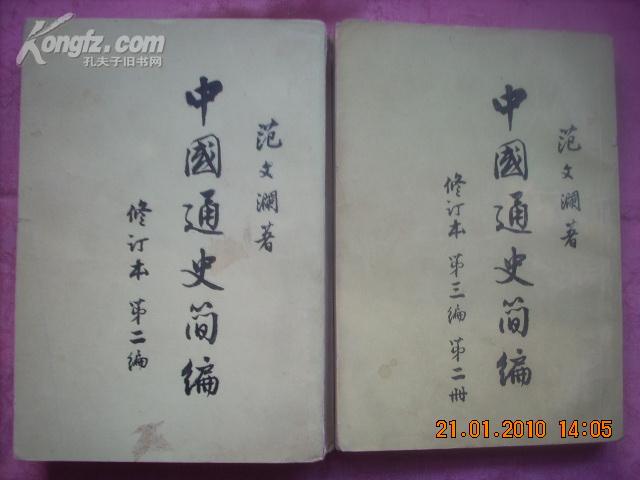 Kongfz.com
孔夫子旧书网
范文瀾著
中國通史简编
修订本 第二编
范文瀾著
中國通史简编
修订本 第三编 第二册
21.01.2010 14:05